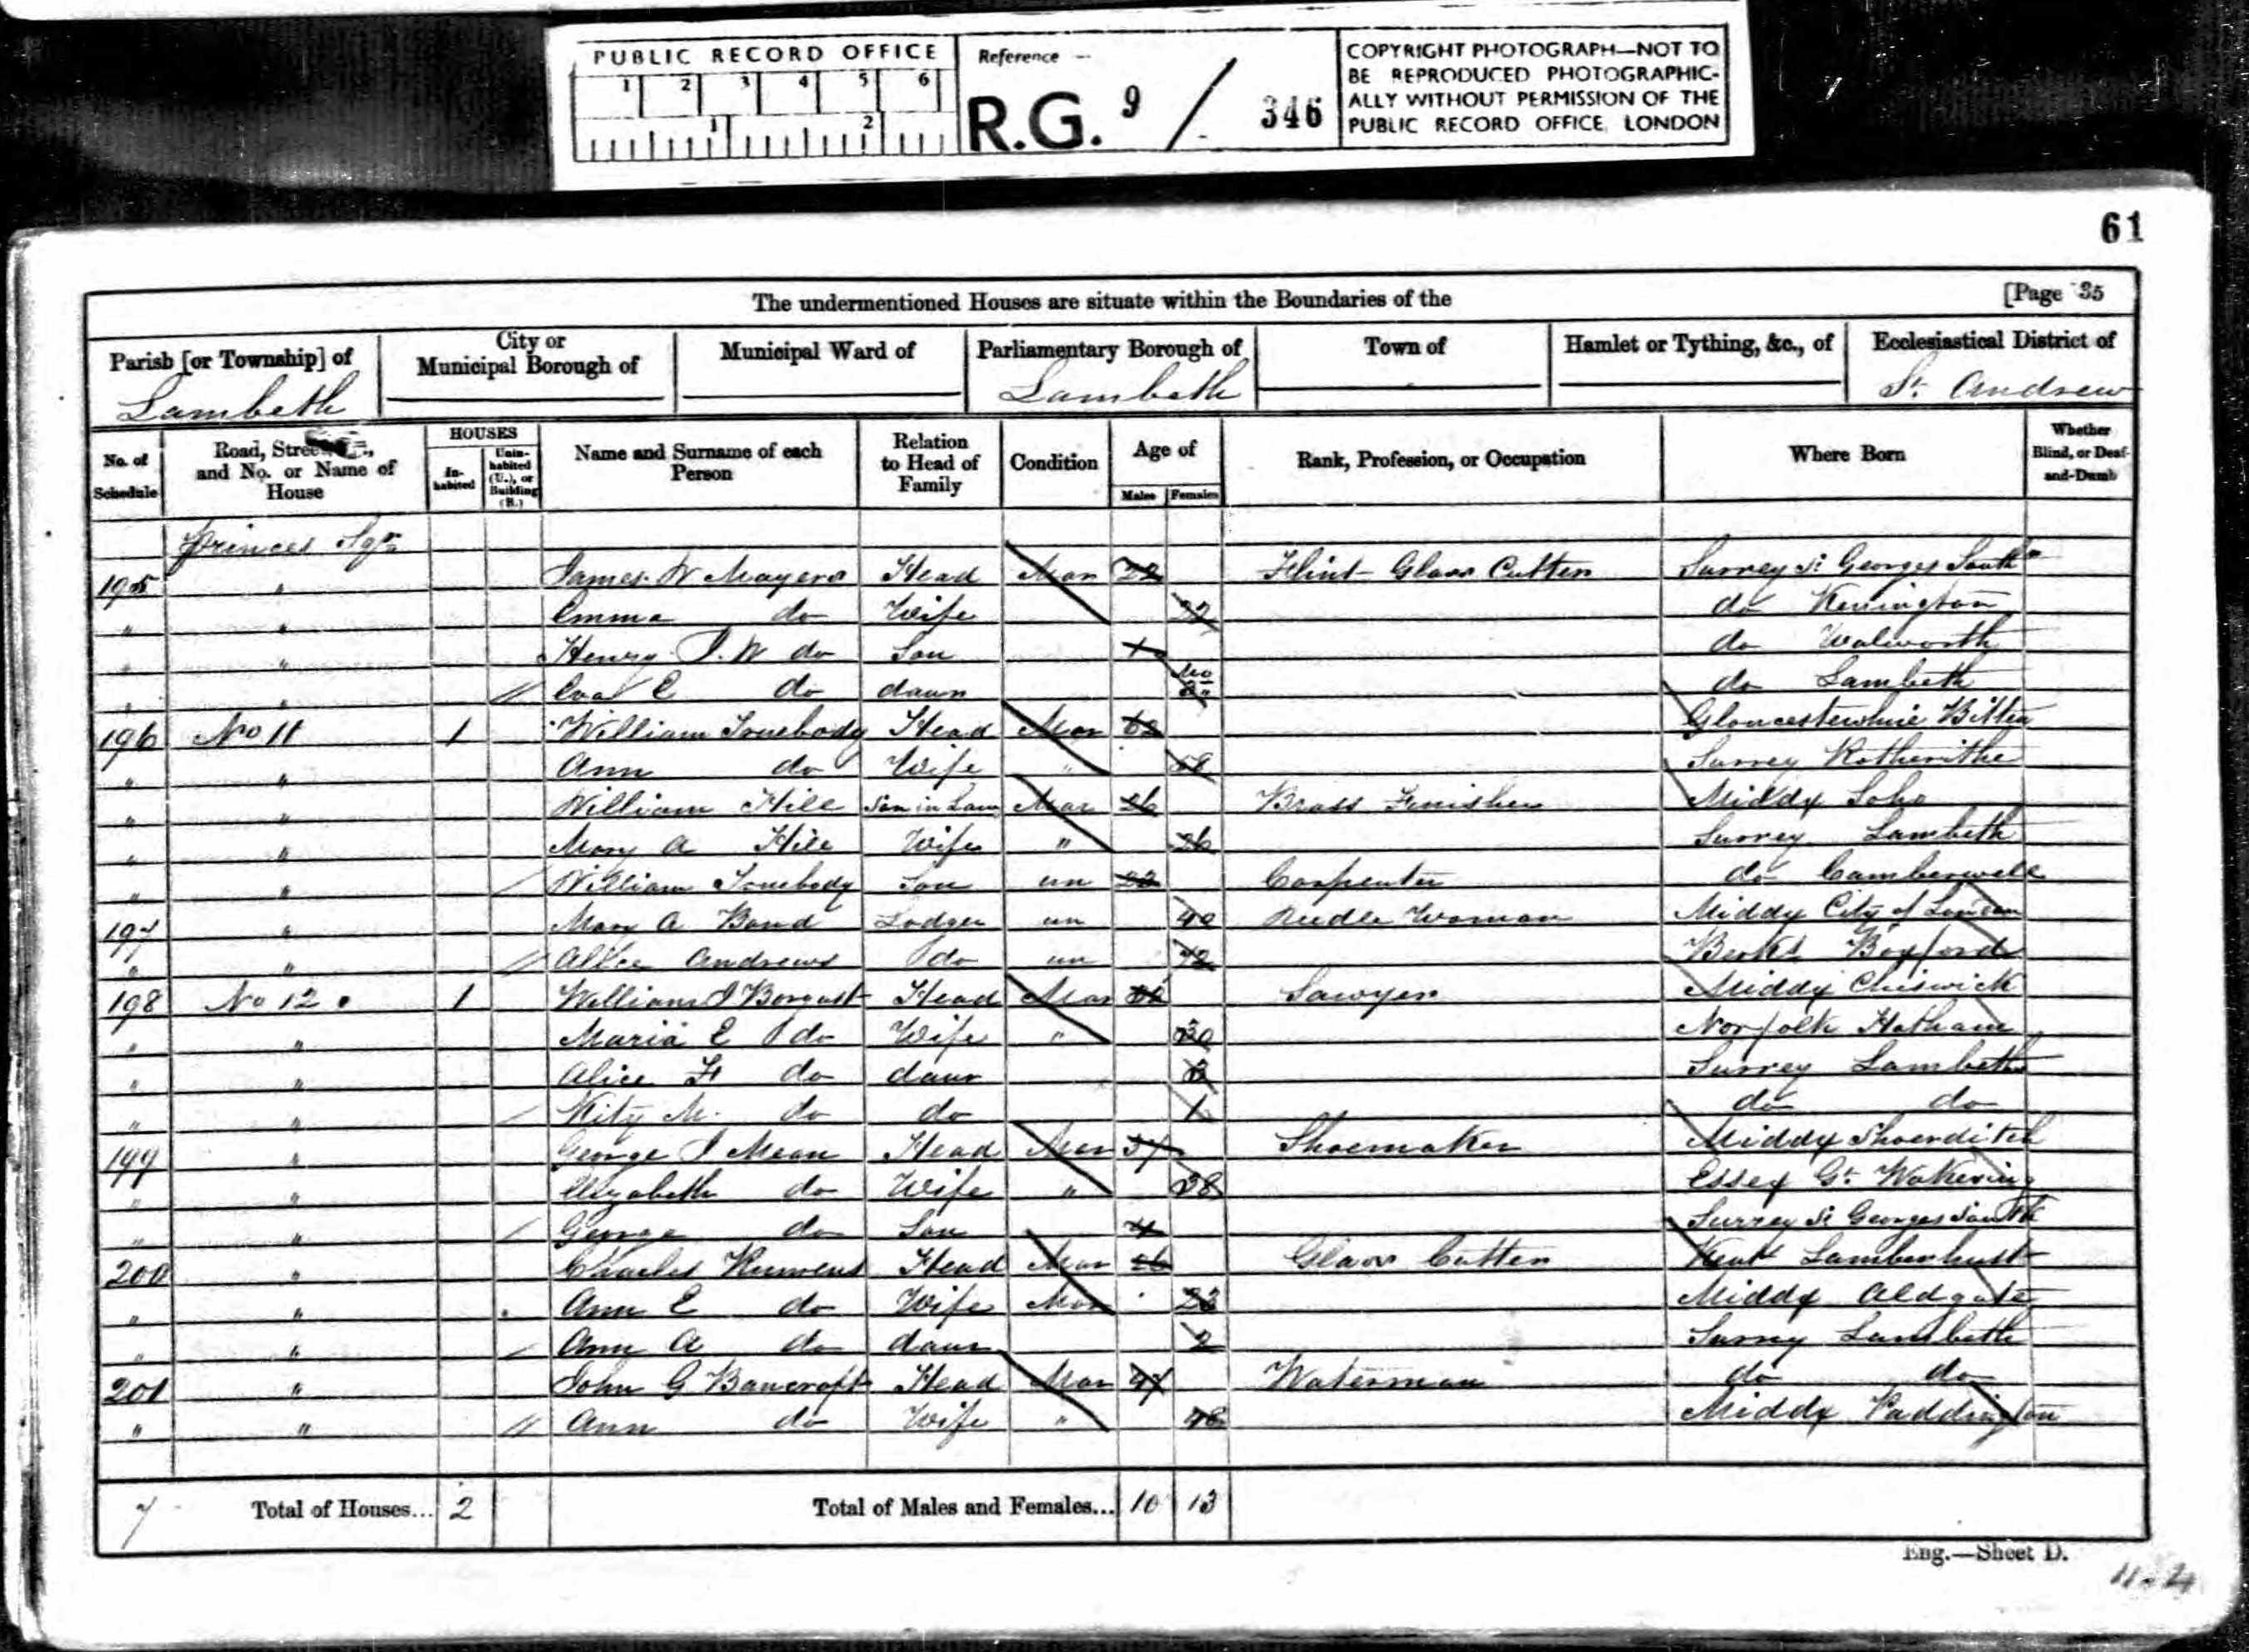 PUBLIC RECORD OFFICE
1 2 3 4 5 6
1 2
Reference -
R.G. 9 / 346
COPYRIGHT PHOTOGRAPH—NOT TO
BE REPRODUCED PHOTOGRAPHIC-
ALLY WITHOUT PERMISSION OF THE
PUBLIC RECORD OFFICE, LONDON
61
The undermentioned Houses are situate within the Boundaries of the [Page 35
Parish [or Township] of Lambeth
City or Municipal Borough of
Municipal Ward of
Parliamentary Borough of Lambeth
Town of
Hamlet or Tything, &c., of
Ecclesiastical District of St. Andrew
No. of Schedule
Road, Street, and No. or Name of House
HOUSES
In-habited
Unin-habited (U.), or Building (B.)
Name and Surname of each Person
Relation to Head of Family
Condition
Age of
Males Females
Rank, Profession, or Occupation
Where Born
Whether Blind, or Deaf-and-Dumb
Princes Sqr
195 " James W Mayers Head Mar 22 Flint Glass Cutter Surrey St Georges South
" " Emma do Wife 22 do Kennington
" " Henry J. W do Son 1 do Walworth
" " Eva E do daur Mo do Lambeth
196 No 11 1 William Head Mar Gloucestershire Bitton
" " Ann do Wife " Surrey Rotherithe
" " William Hill Son in Law Mar 26 Brass Finisher Middx Soho
" " Mary A Hill Wife " 26 Surrey Lambeth
" " William Son un 22 Carpenter do Camberwell
197 " Mary A Bond Lodger un 40 Needle Woman Middx City of London
" " Alice Andrews do un 72 Berks Boxford
198 No 12 1 William J Head Mar Sawyer Middx Chiswick
" " Maria E do Wife " 30 Norfolk
" " Alice do daur Surrey Lambeth
" " Kity M. do do 1 do do
199 " George J Mean Head Mar 37 Shoemaker Middx Shoerditch
" " Elizabeth do Wife " 38 Essex Gt Wakering
" " George do Son 4 Surrey St Georges South
200 " Charles Head Mar 26 Glass Cutter Kent Lamberhust
" " Ann E do Wife Mar 23 Middx Aldgate
" " Ann A do daur 2 Surrey Lambeth
201 " John G Bancroft Head Mar 47 Waterman do do
" " Ann do Wife " 48 Middx Paddington
7 Total of Houses... 2 Total of Males and Females... 10 13
Eng.—Sheet D.